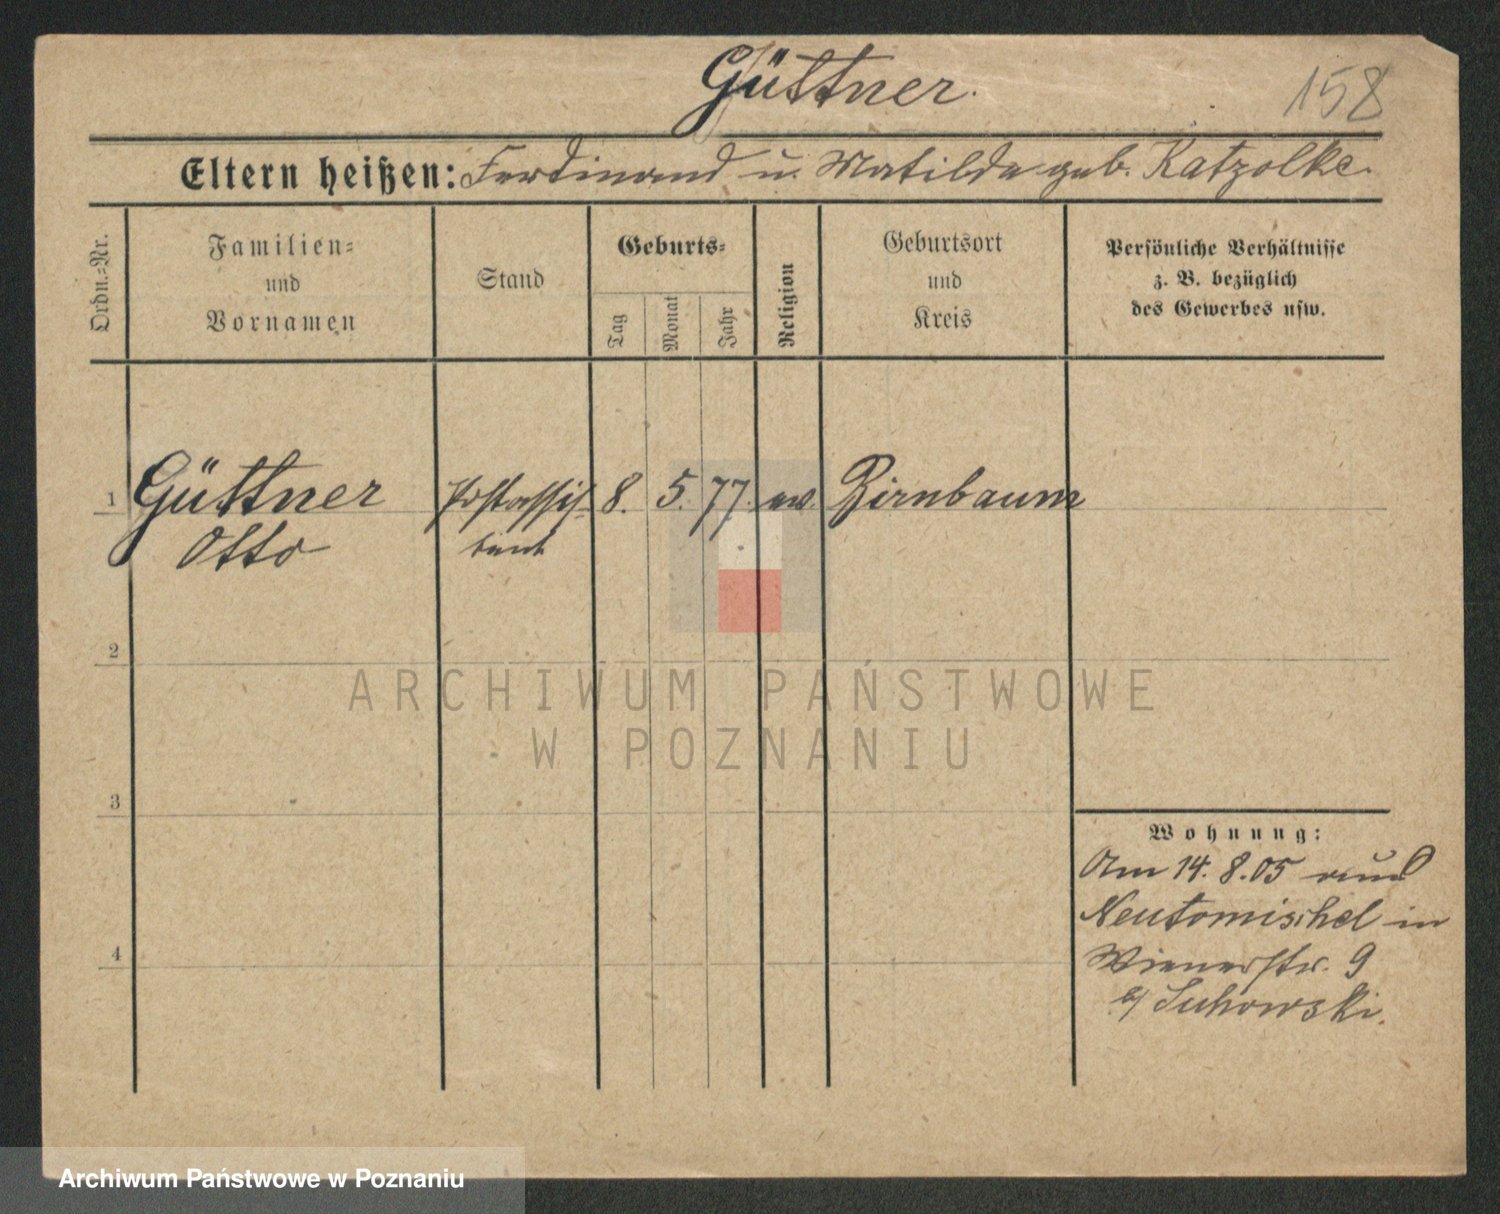 Güttner.
158
Eltern heißen: Ferdinand u. Matilde geb. Katzolke.
Ordn.=Nr.
Familien=
und
Vornamen
Stand
Geburts=
Tag
Monat
Jahr
Religion
Geburtsort
und
Kreis
Persönliche Verhältnisse
z. B. bezüglich
des Gewerbes usw.
1
Güttner Postassis= 8. 5. 77. ev. Birnbaum
Otto tent
2
ARCHIWUM PAŃSTWOWE
W POZNANIU
3
Wohnung:
Am 14. 8. 05 aus
Neutomischel in
Wienerstr. 9
b/ Suhowski.
4
Archiwum Państwowe w Poznaniu